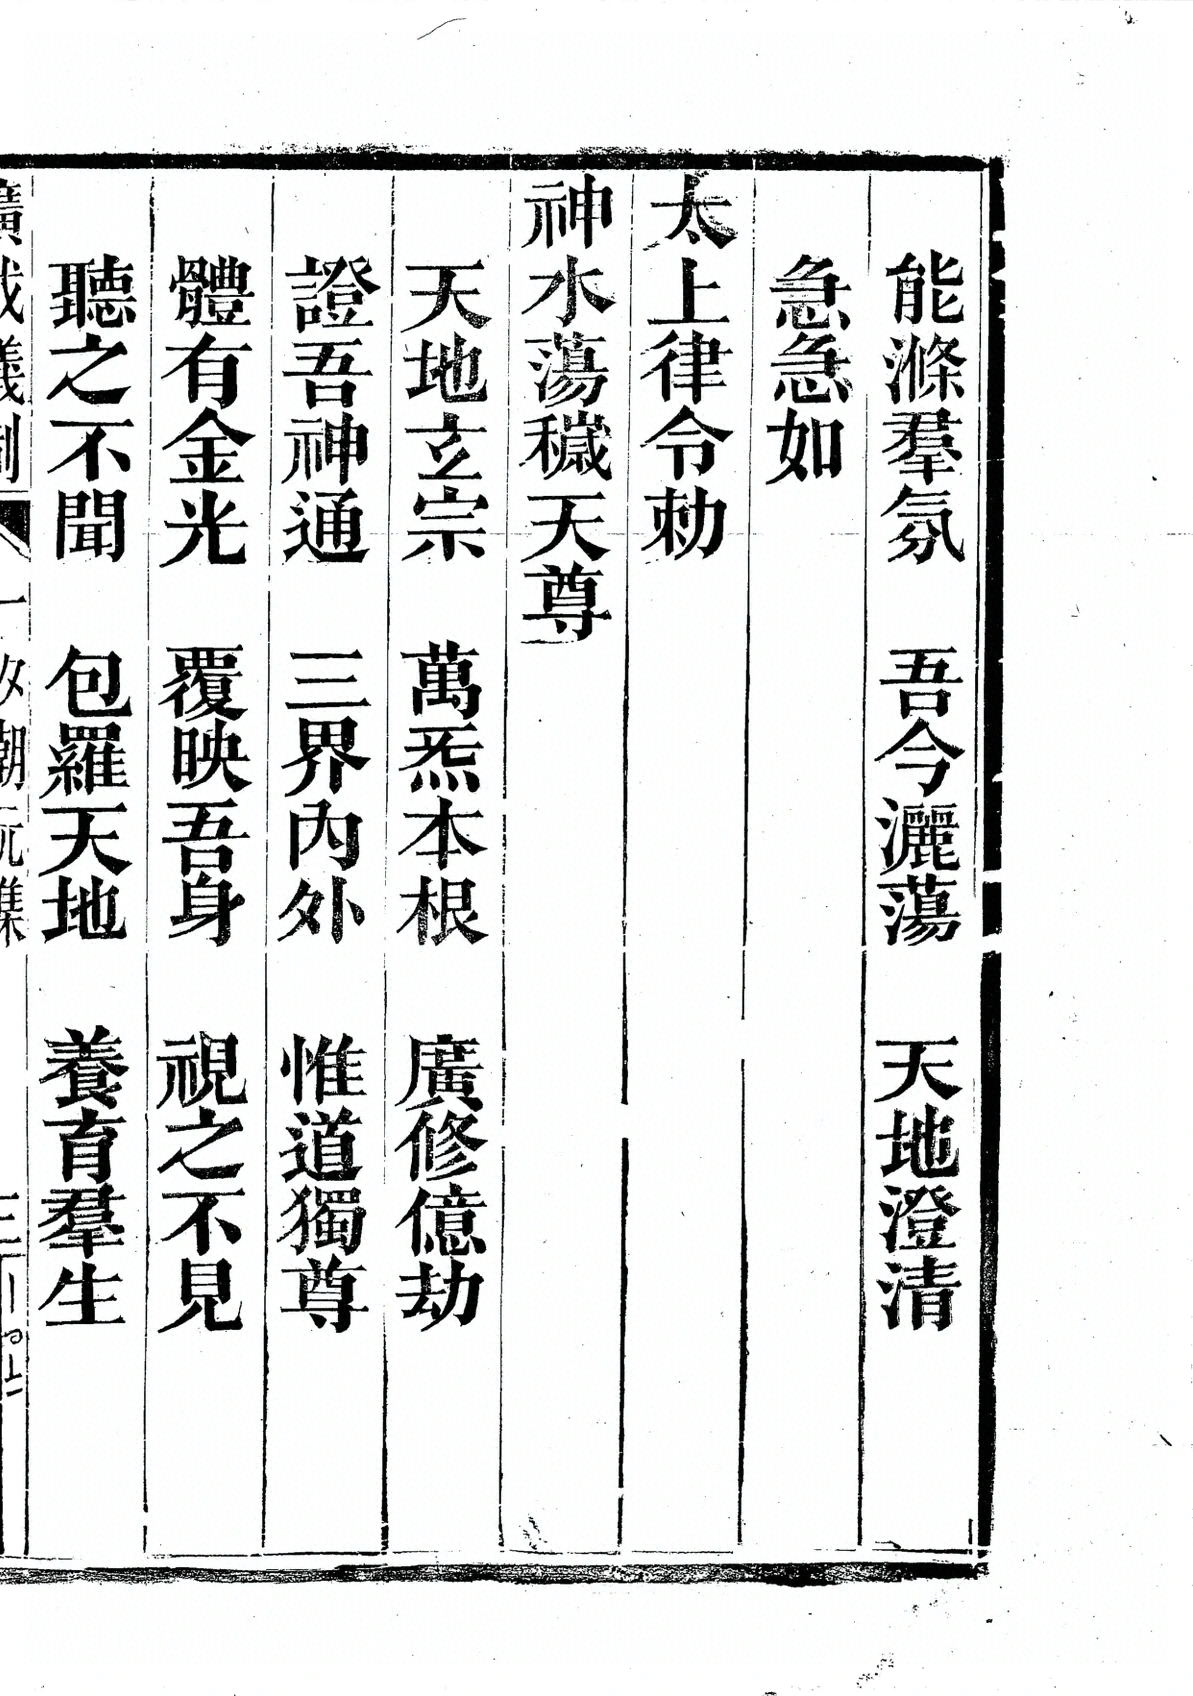 能滌羣氛　吾今灑蕩　天地澄清
急急如
太上律令勅
神水蕩穢天尊
天地玄宗　萬炁本根　廣修億劫
證吾神通　三界內外　惟道獨尊
體有金光　覆映吾身　視之不見
聽之不聞　包羅天地　養育羣生
廣成儀制